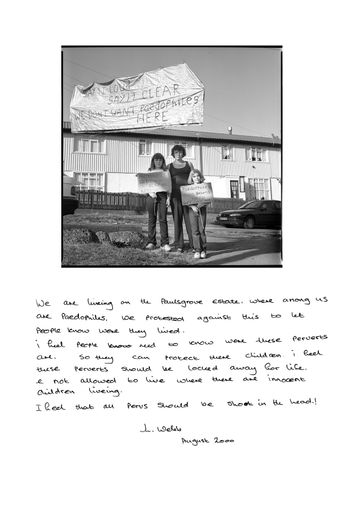 SAY IT CLEAR
DON'T WANT PAEDOPHILES
HERE
We are liveing on the Paulsgrove estate. where among us
are Paedophiles, we protested against this to let
People know were they lived.
i feel People need to know were these perverts
are. So they can protect there children i feel
these perverts should be locked away for life.
e not allowed to live where there are innocent
children liveing.
I feel that all pervs should be shoot in the head.!
L. Webb
August 2000